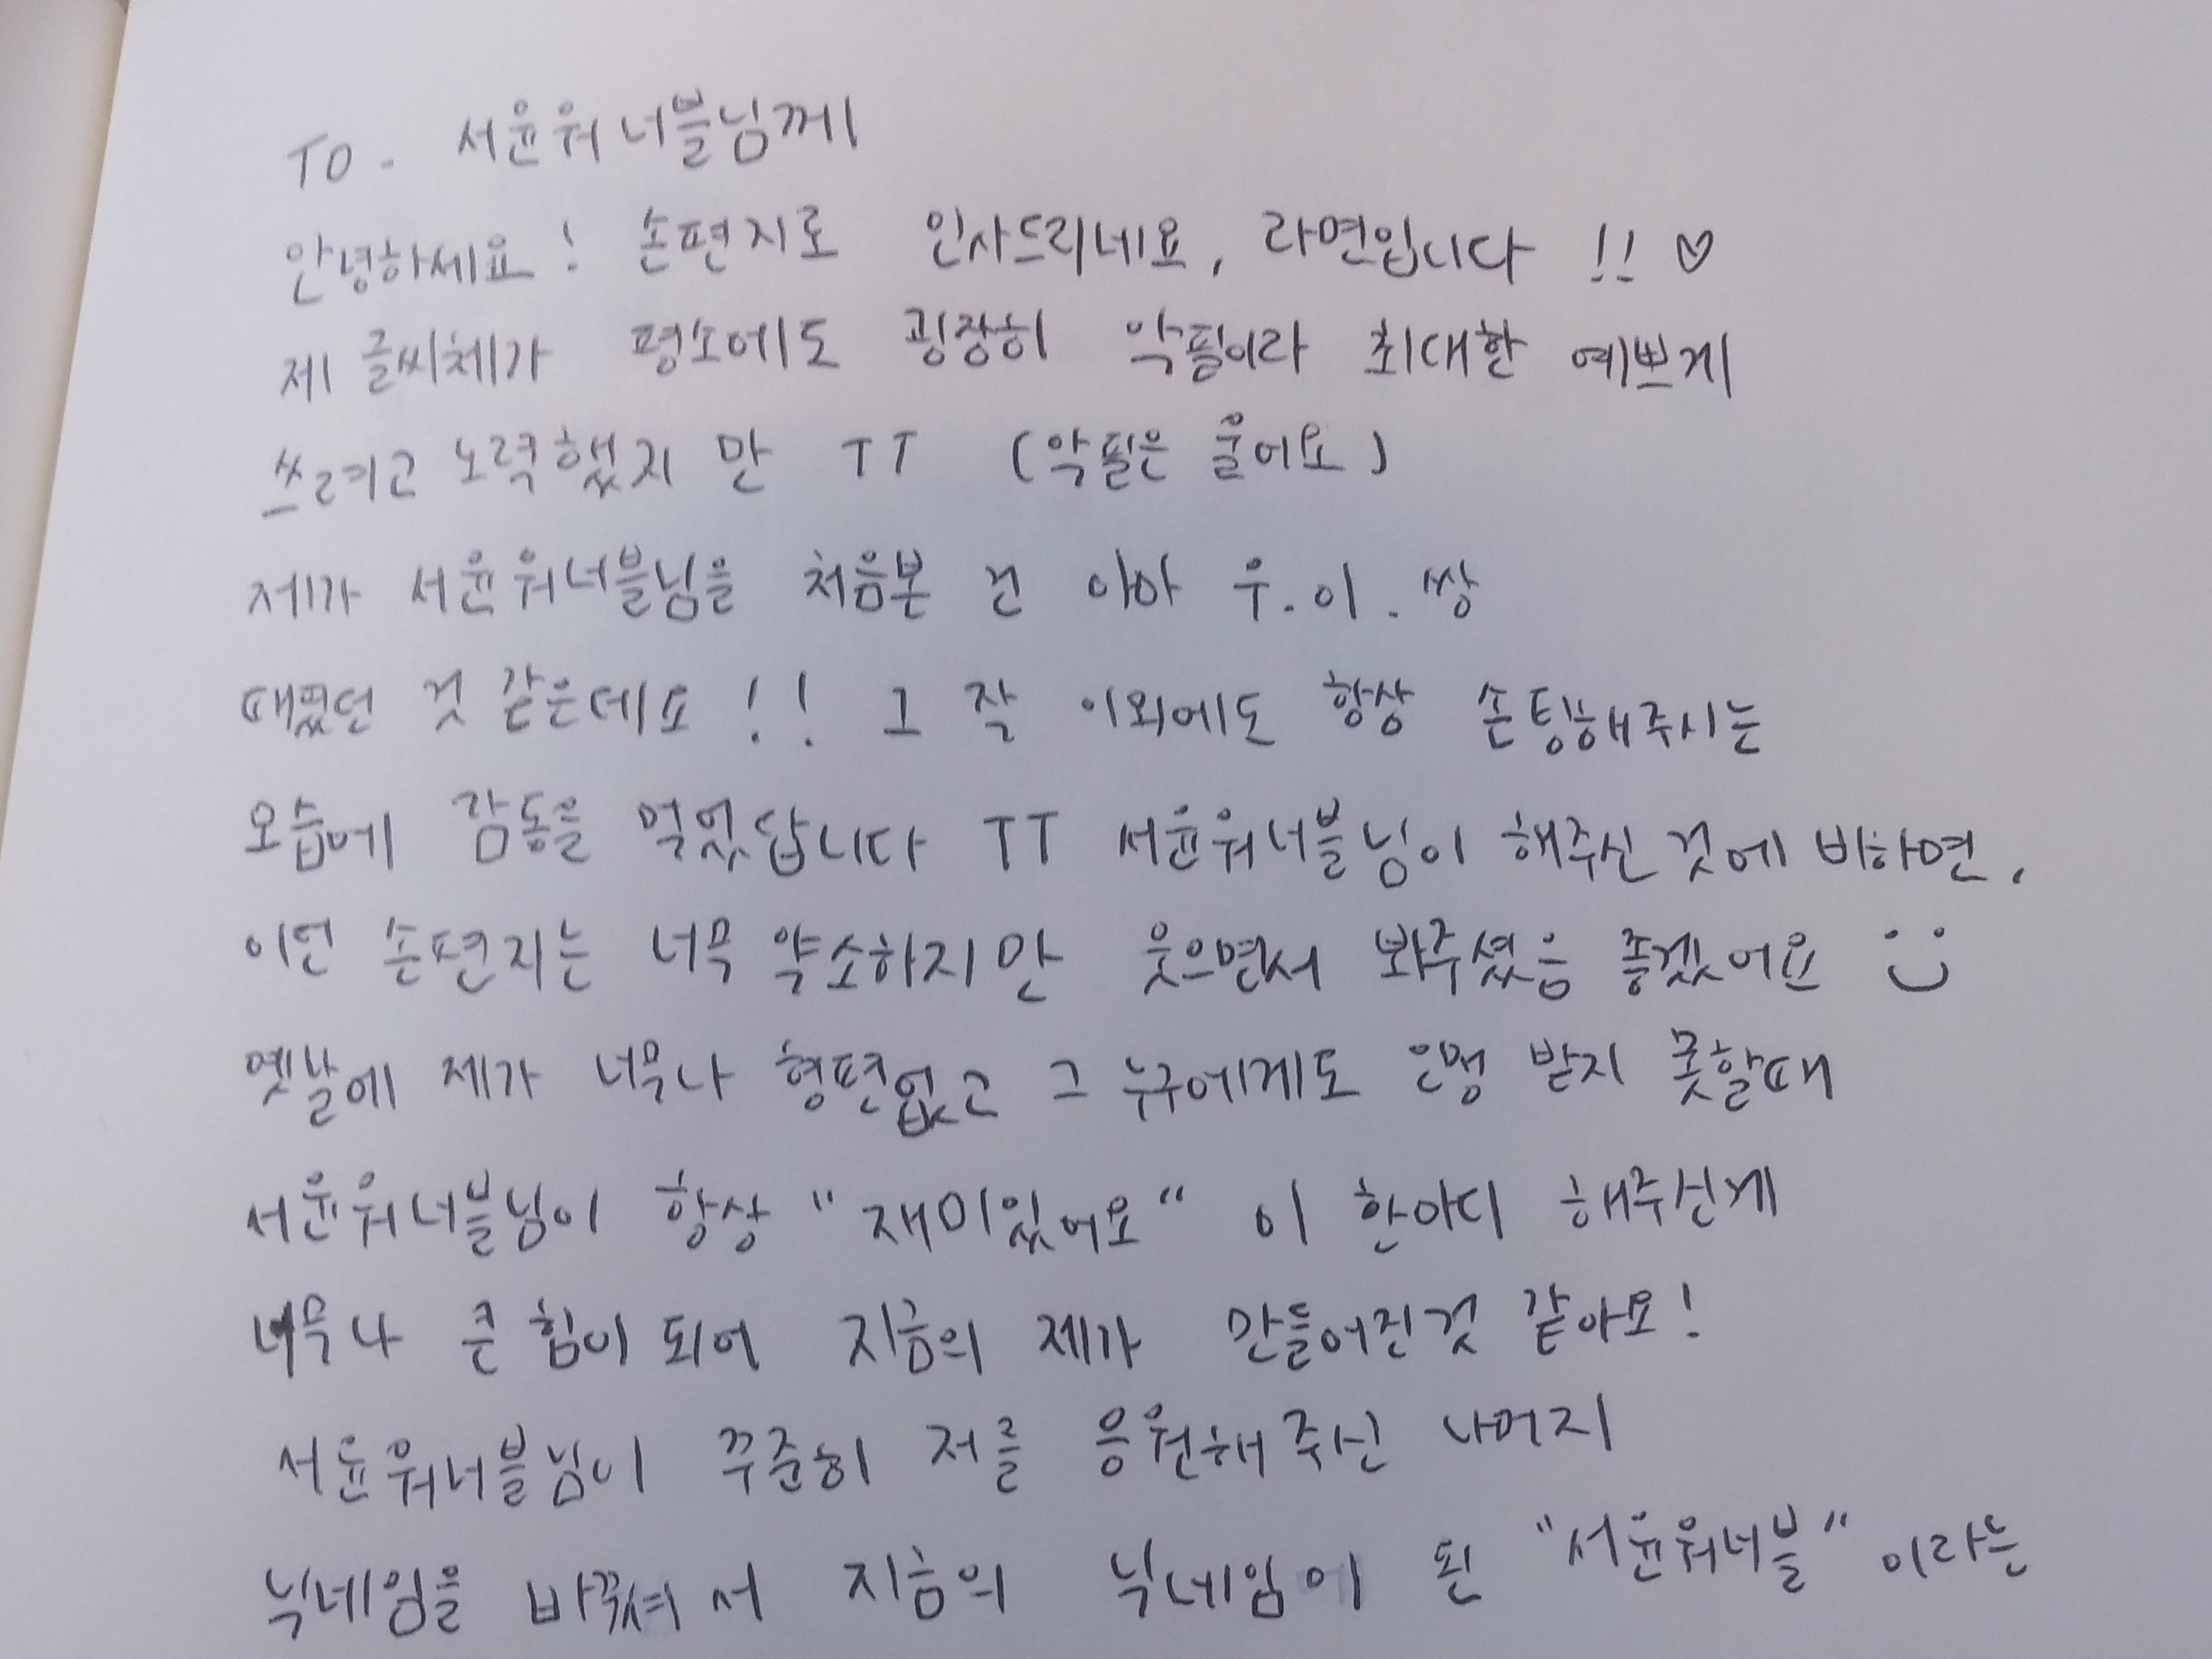 TO. 서윤워너블님께
안녕하세요! 손편지로 인사드리네요, 라면입니다 !! ♡
제 글씨체가 평소에도 굉장히 악필이라 최대한 예쁘게
쓰려고 노력했지만 TT (악필은 울어요)
제가 서윤워너블님을 처음본 건 아마 우.이.쌍
때였던 것 같은데요!! 그 작 이외에도 항상 손팅해주시는
모습에 감동을 먹었답니다 TT 서윤워너블님이 해주신 것에 비하면,
이런 손편지는 너무 약소하지만 웃으면서 봐주셨음 좋겠어요
옛날에 제가 너무나 형편없고 그 누구에게도 받지 못할때
서윤워너블님이 항상 "재미있어요" 이 한마디 해주신게
너무나 큰 힘이 되어 지금의 제가 만들어진것 같아요!
서윤워너블님이 꾸준히 저를 응원해주신 나머지
닉네임을 바꾸셔서 지금의 닉네임이 된 "서윤워너블" 이라는